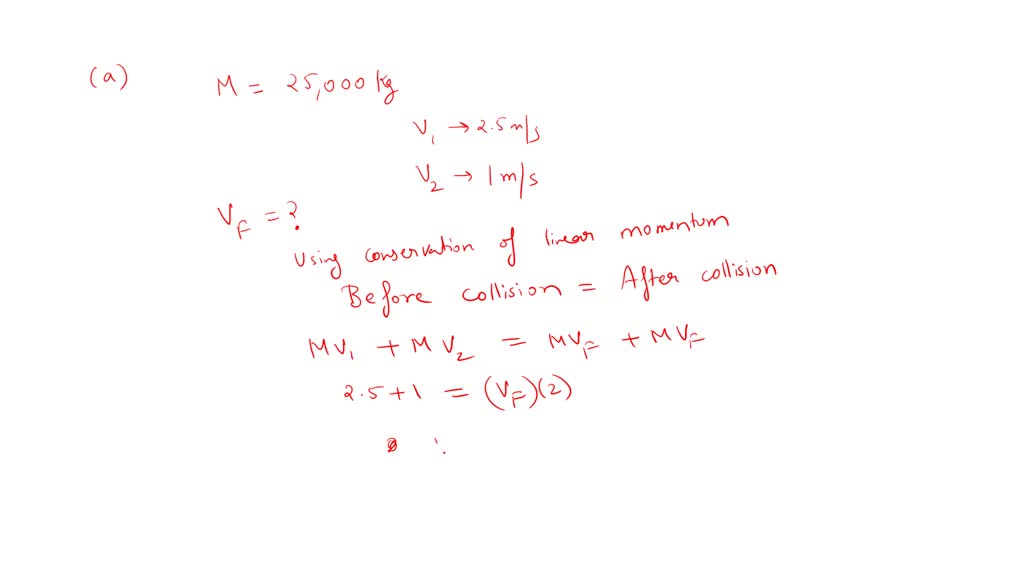 (a)
M = 25,000 Kg
V₁ → 2.5 m/s
V₂ → 1 m/s
V_F = ?
Using conservation of linear momentum
Before collision = After collision
MV₁ + MV₂ = MV_F + MV_F
2.5 + 1 = (V_F)(2)